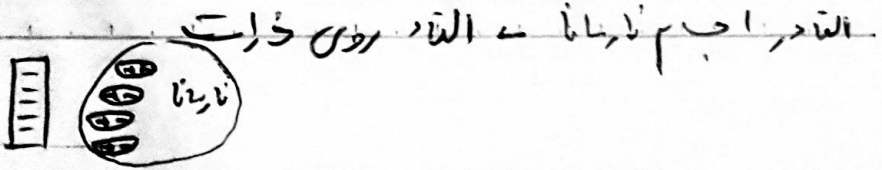 القا در اجسام نارسانا ← القا روی ذرات
نارسانا